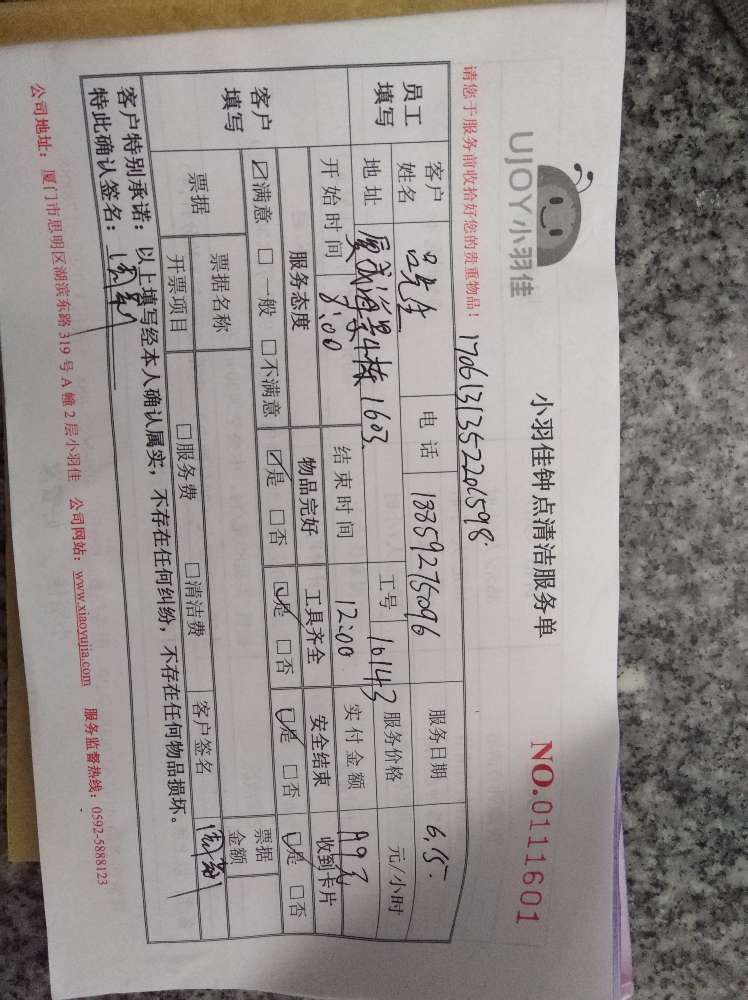 UJOY小羽佳
小羽佳钟点清洁服务单
NO.0111601
请您于服务前收拾好您的贵重物品！
1706131352201598
员工填写
客户姓名 吕先生 电话 13859275096 服务日期 6.15.
地址 厦武海景4栋1603 工号 10143 服务价格 元/小时
开始时间 8:00 结束时间 12:00 实付金额 99元
客户填写
服务态度 物品完好 工具齐全 安全结束 收到卡片
☑满意 □一般 □不满意 ☑是 □否 ☑是 □否 ☑是 □否 ☑是 □否
票据 票据名称 票据金额
开票项目 □服务费 □清洁费 客户签名
客户特别承诺：以上填写经本人确认属实，不存在任何纠纷，不存在任何物品损坏。
特此确认签名：
公司地址：厦门市思明区湖滨东路319号A幢2层小羽佳 公司网站：www.xiaoyujia.com 服务监督热线：0592-5888123